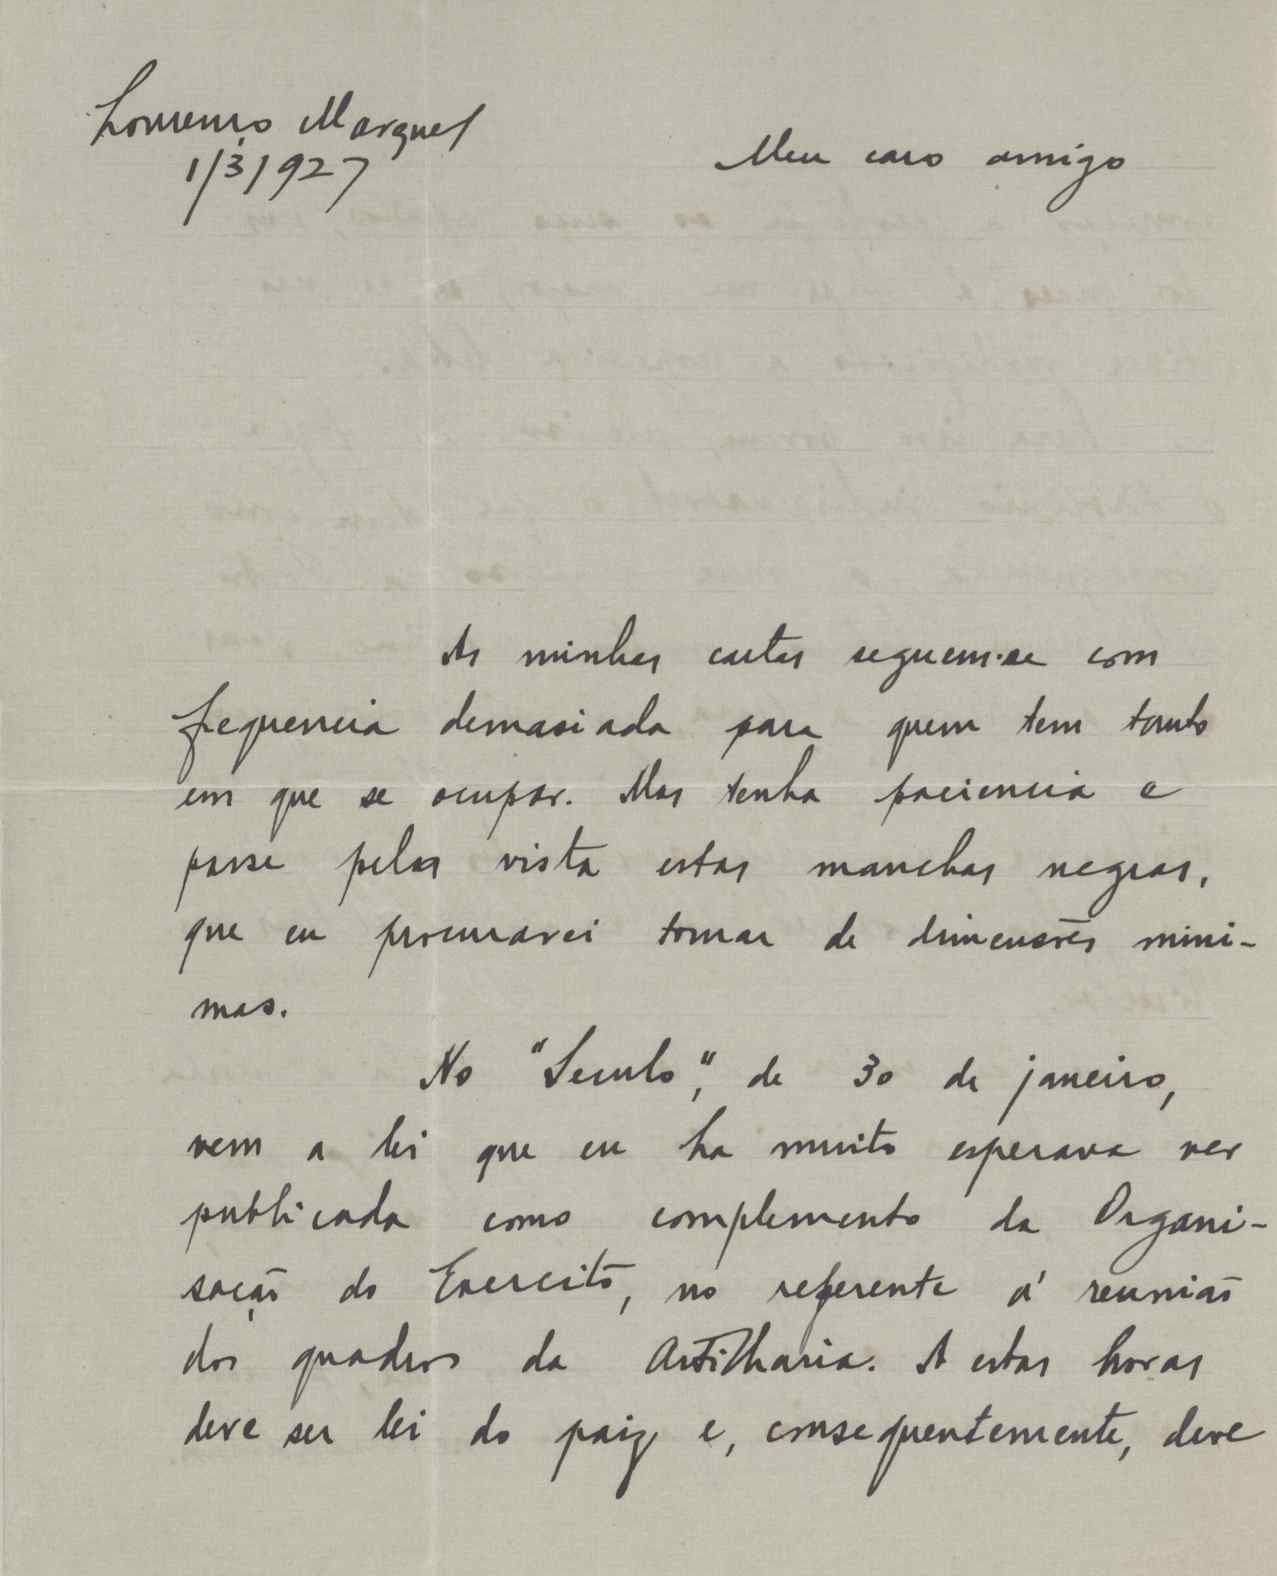 Lourenço Marques
1/3/927
Meu caro amigo
As minhas cartas seguem-se com
frequencia demasiada para quem tem tanto
em que se ocupar. Mas tenha paciencia e
passe pelas vista estas manchas negras,
que eu procurarei tornar de dimensões mini-
mas.
No "Seculo", de 30 de janeiro,
vem a lei que eu ha muito esperava ver
publicada como complemento da Organi-
sação do Exercito, no referente á reunião
dos quadros da Artilharia. A estas horas
deve ser lei do paiz e, consequentemente, deve